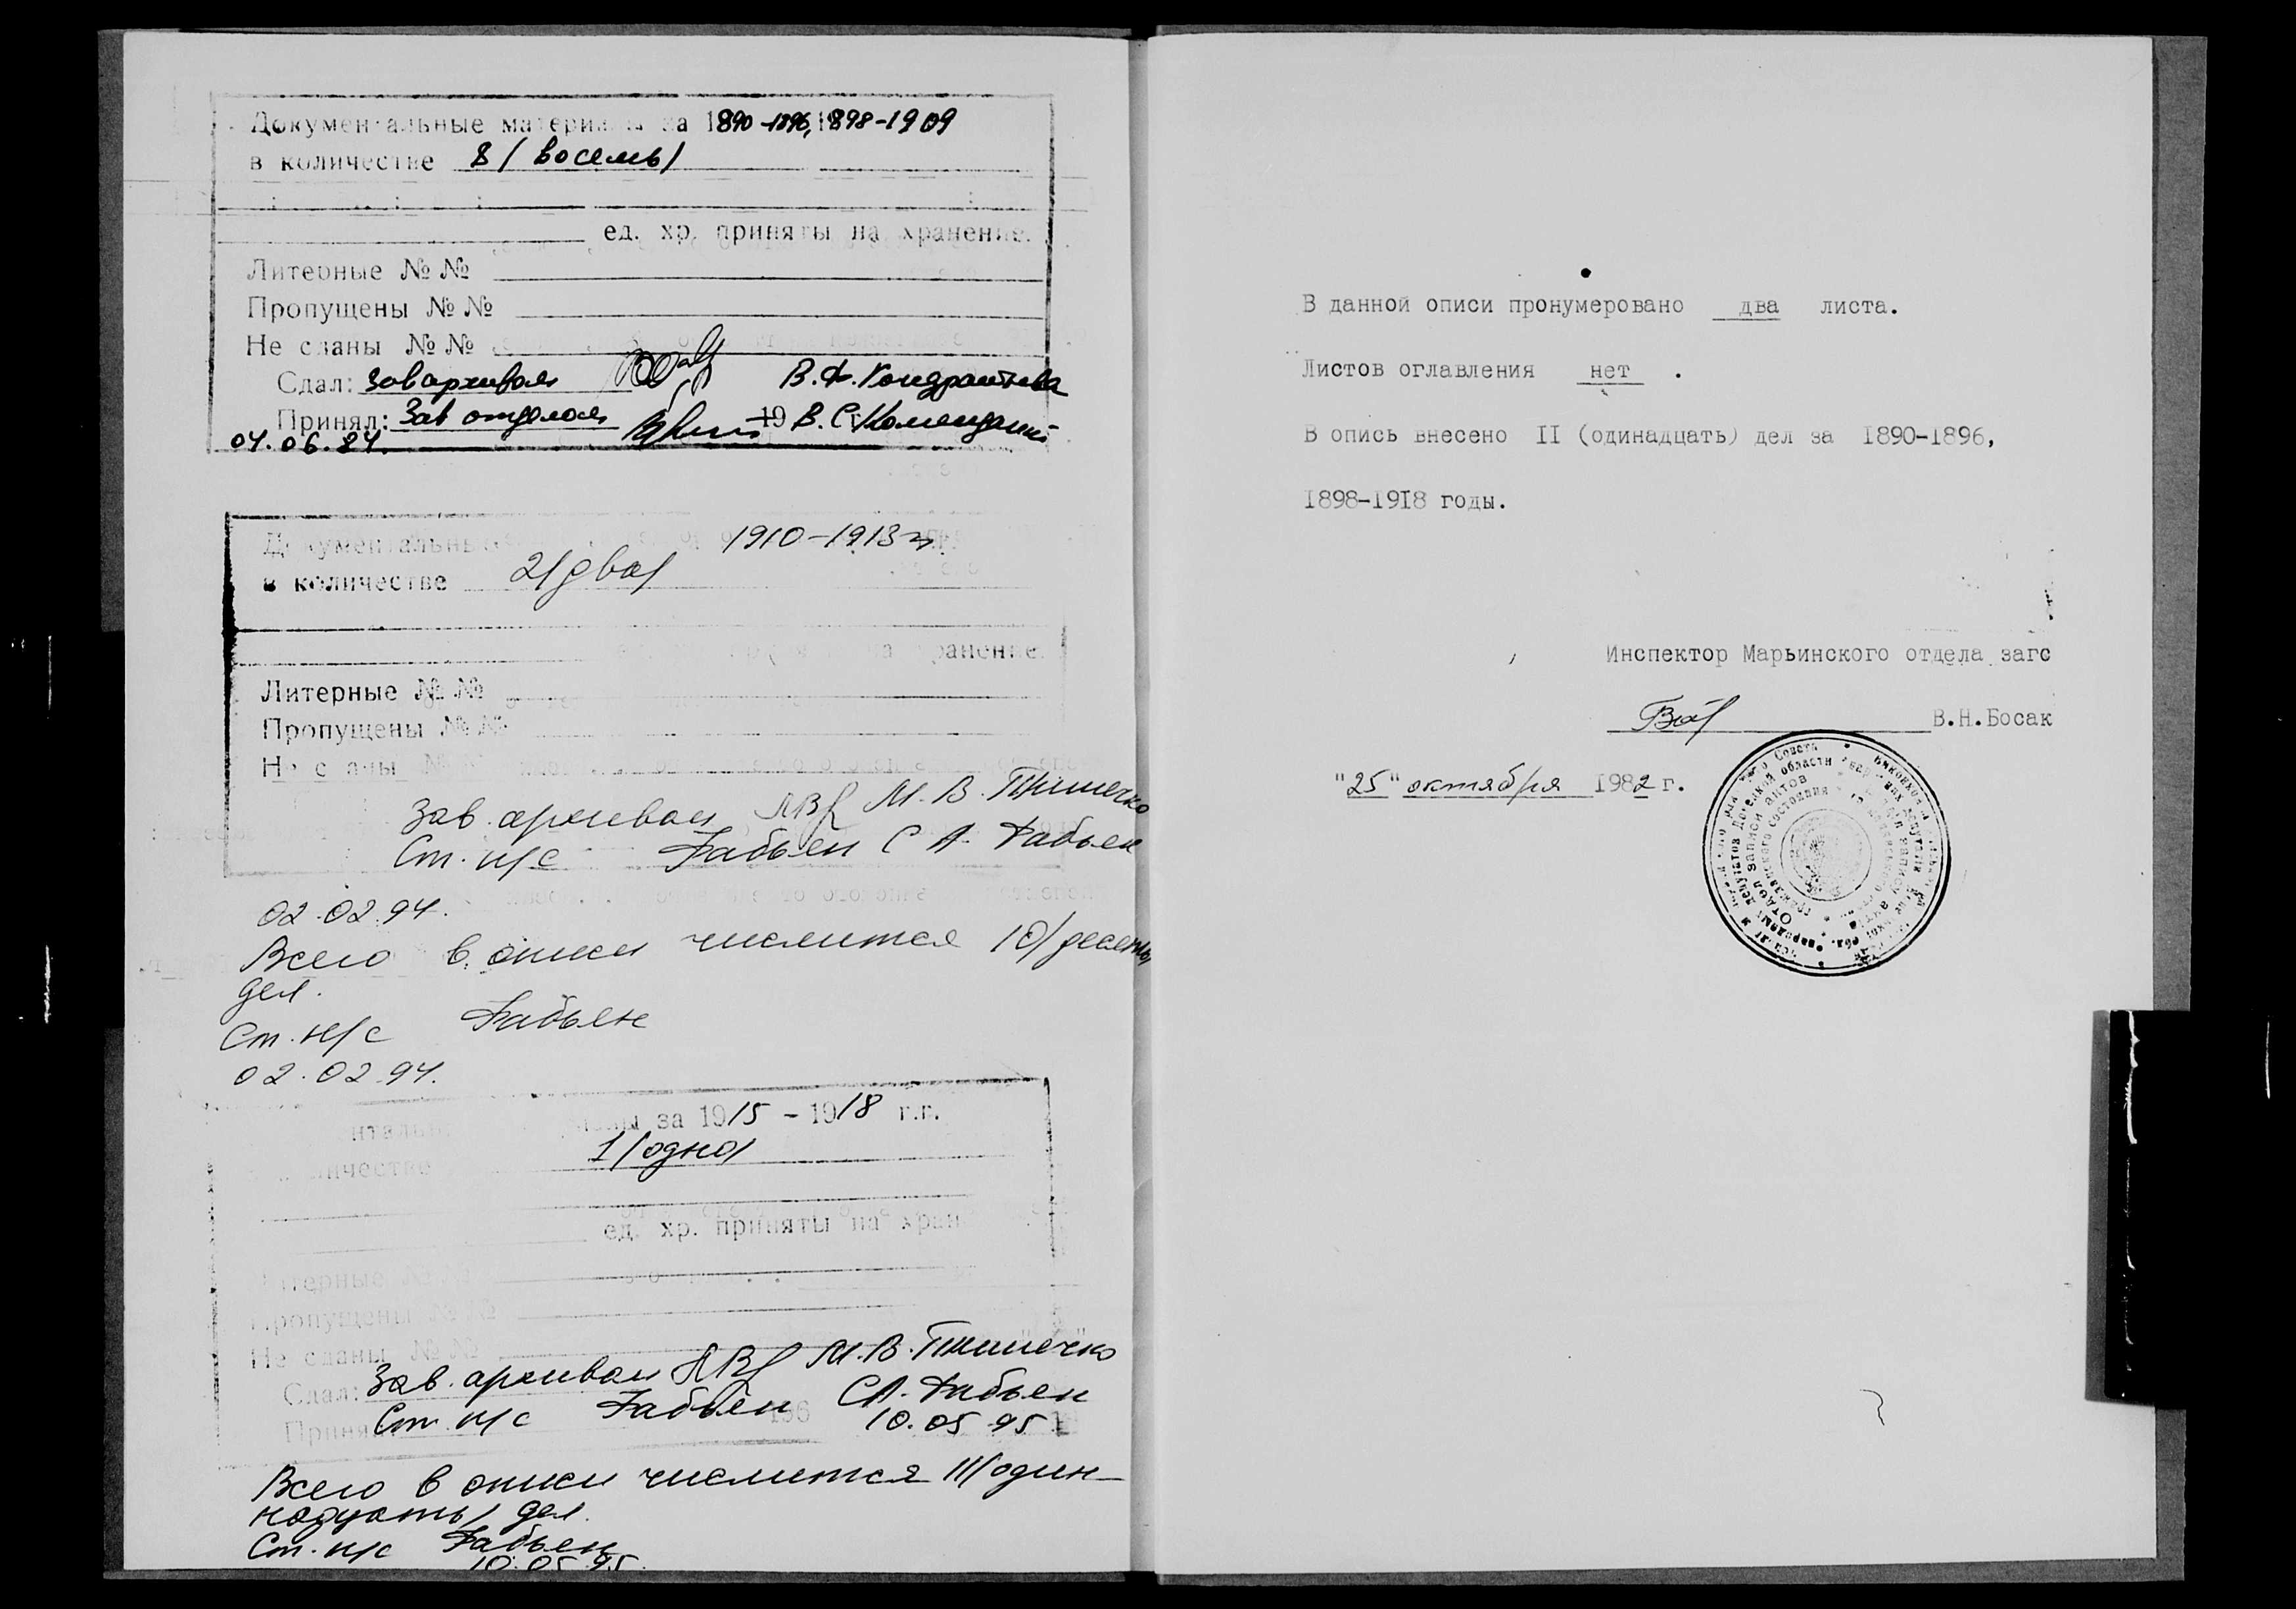 Документальные материалы за 1890-1896, 1898-1909
в количестве 8 (восемь)
ед. хр. приняты на хранение.
Литерные №№
Пропущены №№
Не сданы №№
Сдал: Зав архивом В.Ф. Кондратьева
Принял: Зав отделом 19 В.С.
04.06.84.
Документальные 1910-1913 гг.
в количестве 2 (два)
хранение.
Литерные №№
Пропущены №№
Не сданы №
Зав. архивом М.В.
Ст. н/с Фабьен С А. Фабьен
02.02.94.
Всего в описи числится 10 (десять)
дел.
Ст. н/с Фабьен
02.02.94.
за 1915 - 1918 г.г.
1 (одно)
ед. хр. приняты на хран
Литерные №№
Пропущены №№
Не сданы №№
Сдал: Зав. архивом М.В.
Принял Ст. н/с Фабьен С.А. Фабьен
10.05.95
Всего в описи числится 11 (один-
надцать) дел.
Ст. н/с Фабьен
10.05.95.
В данной описи пронумеровано два листа.
Листов оглавления нет .
В опись внесено II (одинадцать) дел за 1890-1896,
1898-1918 годы.
Инспектор Марьинского отдела загс
В.Н.Босак
"25" октября 1982 г.